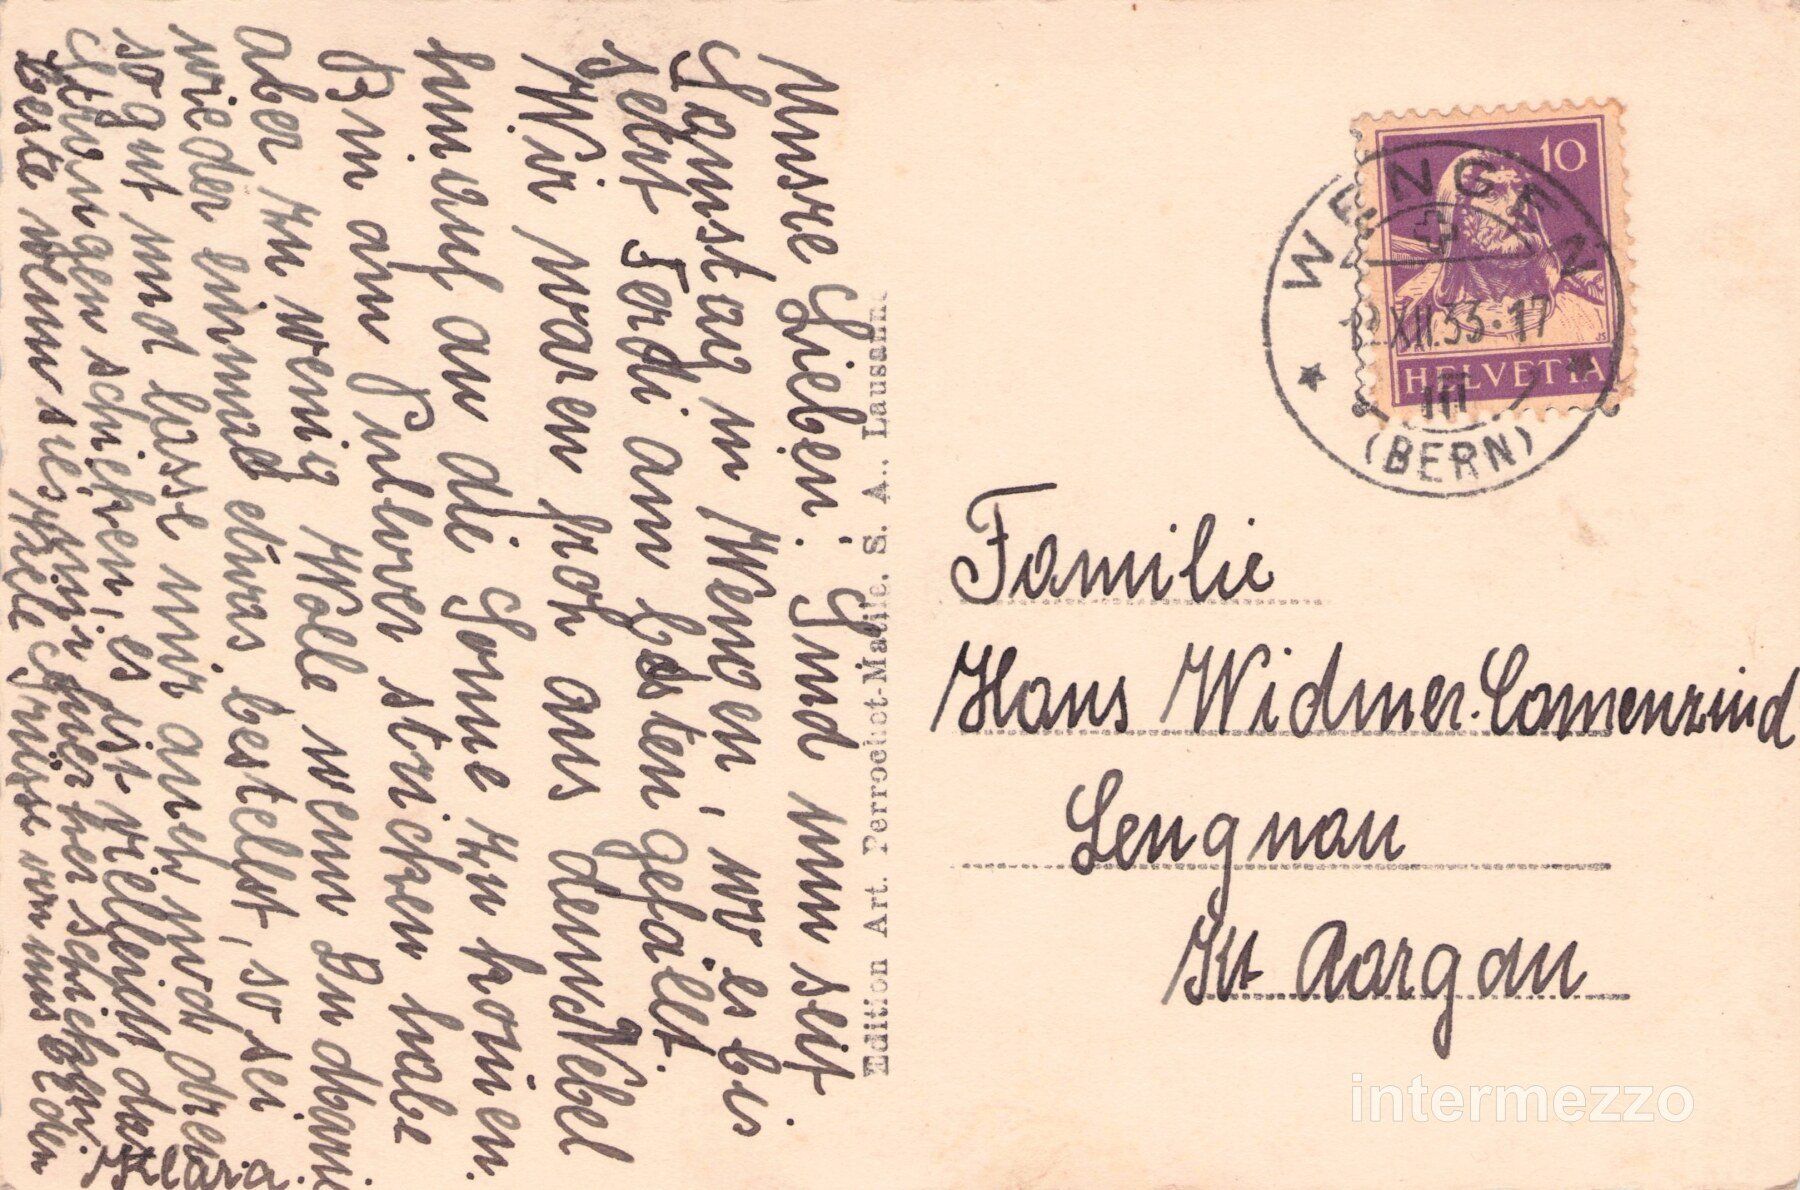 Unsre Lieben. Sind nun seit
Samstag in Wengen, wo es bis
jetzt Ferdi am besten gefällt.
Wir waren froh aus dem Nebel
hinauf an die Sonne zu kommen.
Bin am Pullover stricken habe
aber zu wenig Wolle wenn Du Mami
wieder einmal etwas bestellst, so sei
so gut und lasse mir auch noch drei
Strangen schicken, es ist vielleicht das
beste wenn sie's mir hierher schicken.
Viele Grüsse von uns beiden
Klara.
Edition Art. Perrochet-Matile, S. A., Lausanne
10
HELVETIA
WENGEN
12.XII.33.17
III
(BERN)
Familie
Hans Widmer-Camenzind
Lengnau
Kt Aargau
intermezzo